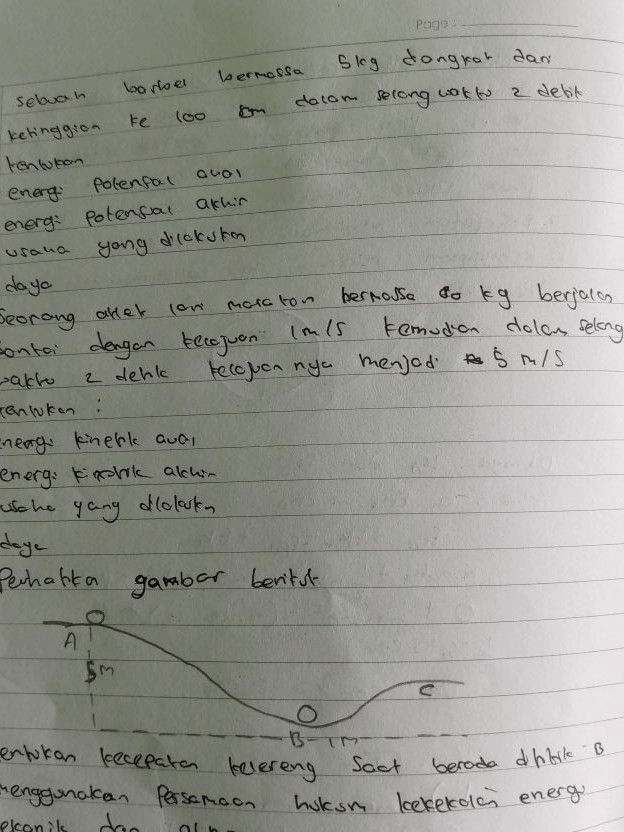 Page :
sebuah barbel bermassa 5kg diangkat dari
ketinggian ke 100 cm dalam selang waktu 2 detik
tentukan
energi Potensial awal
energi Potensial akhir
usaha yang dilakukan
daya
Seorang atlet lari maraton bermassa 80 kg berjalan
santai dengan kecepatan 1m/s kemudian dalam selang
waktu 2 detik kecepatan nya menjadi 5 m/s
tentukan :
energi kinetik awal
energi kinetik akhir
usaha yang dilakukan
daya
Perhatikan gambar berikut
A
5m
C
B 1m
tentukan kecepatan kelereng saat berada dititik B
menggunakan Persamaan hukum kekekalan energi
mekanik dan